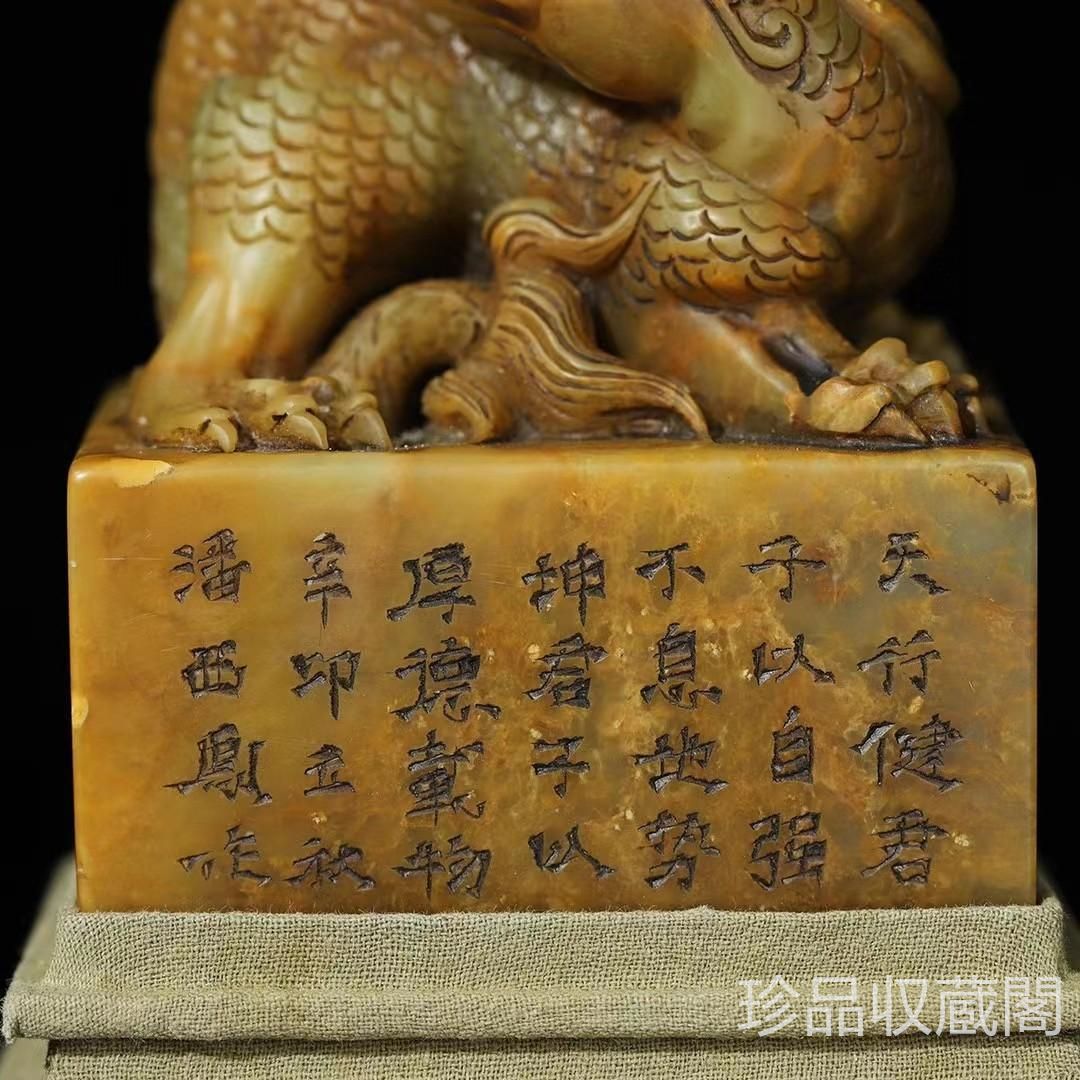 天行健君
子以自强
不息地势
坤君子以
厚德載物
辛卯立秋
潘西鳳作
珍品收蔵閣